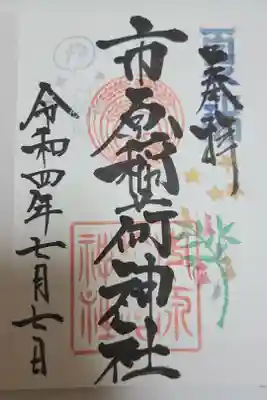 奉拝
市原稲荷神社
令和四年七月七日